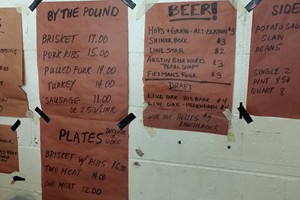 BY THE POUND
BRISKET 17.00
PORK RIBS 15.00
PULLED PORK 14.00
TURKEY 14.00
SAUSAGE 17.00
PLATES
BRISKET W/
TWO MEAT
ONE MEAT 12.00
BEER!
HOPS & GRAIN
SHINER BOCK $3
LONE STAR $2
AUSTIN BEER WORKS $3
"PEARL SNAP"
FIREMANS FOUR $3
DRAFT
LIVE OAK BIG BARK $4
LIVE OAK
SIDE
POTATO
SLAW
BEANS
SINGLE 2
PINT
QUART 8